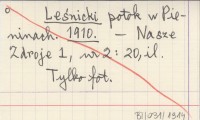 Leśnicki potok w Pie-
ninach. 1910. — Nasze
Zdroje 1, nr 2 : 20, il.
Tylko fot.